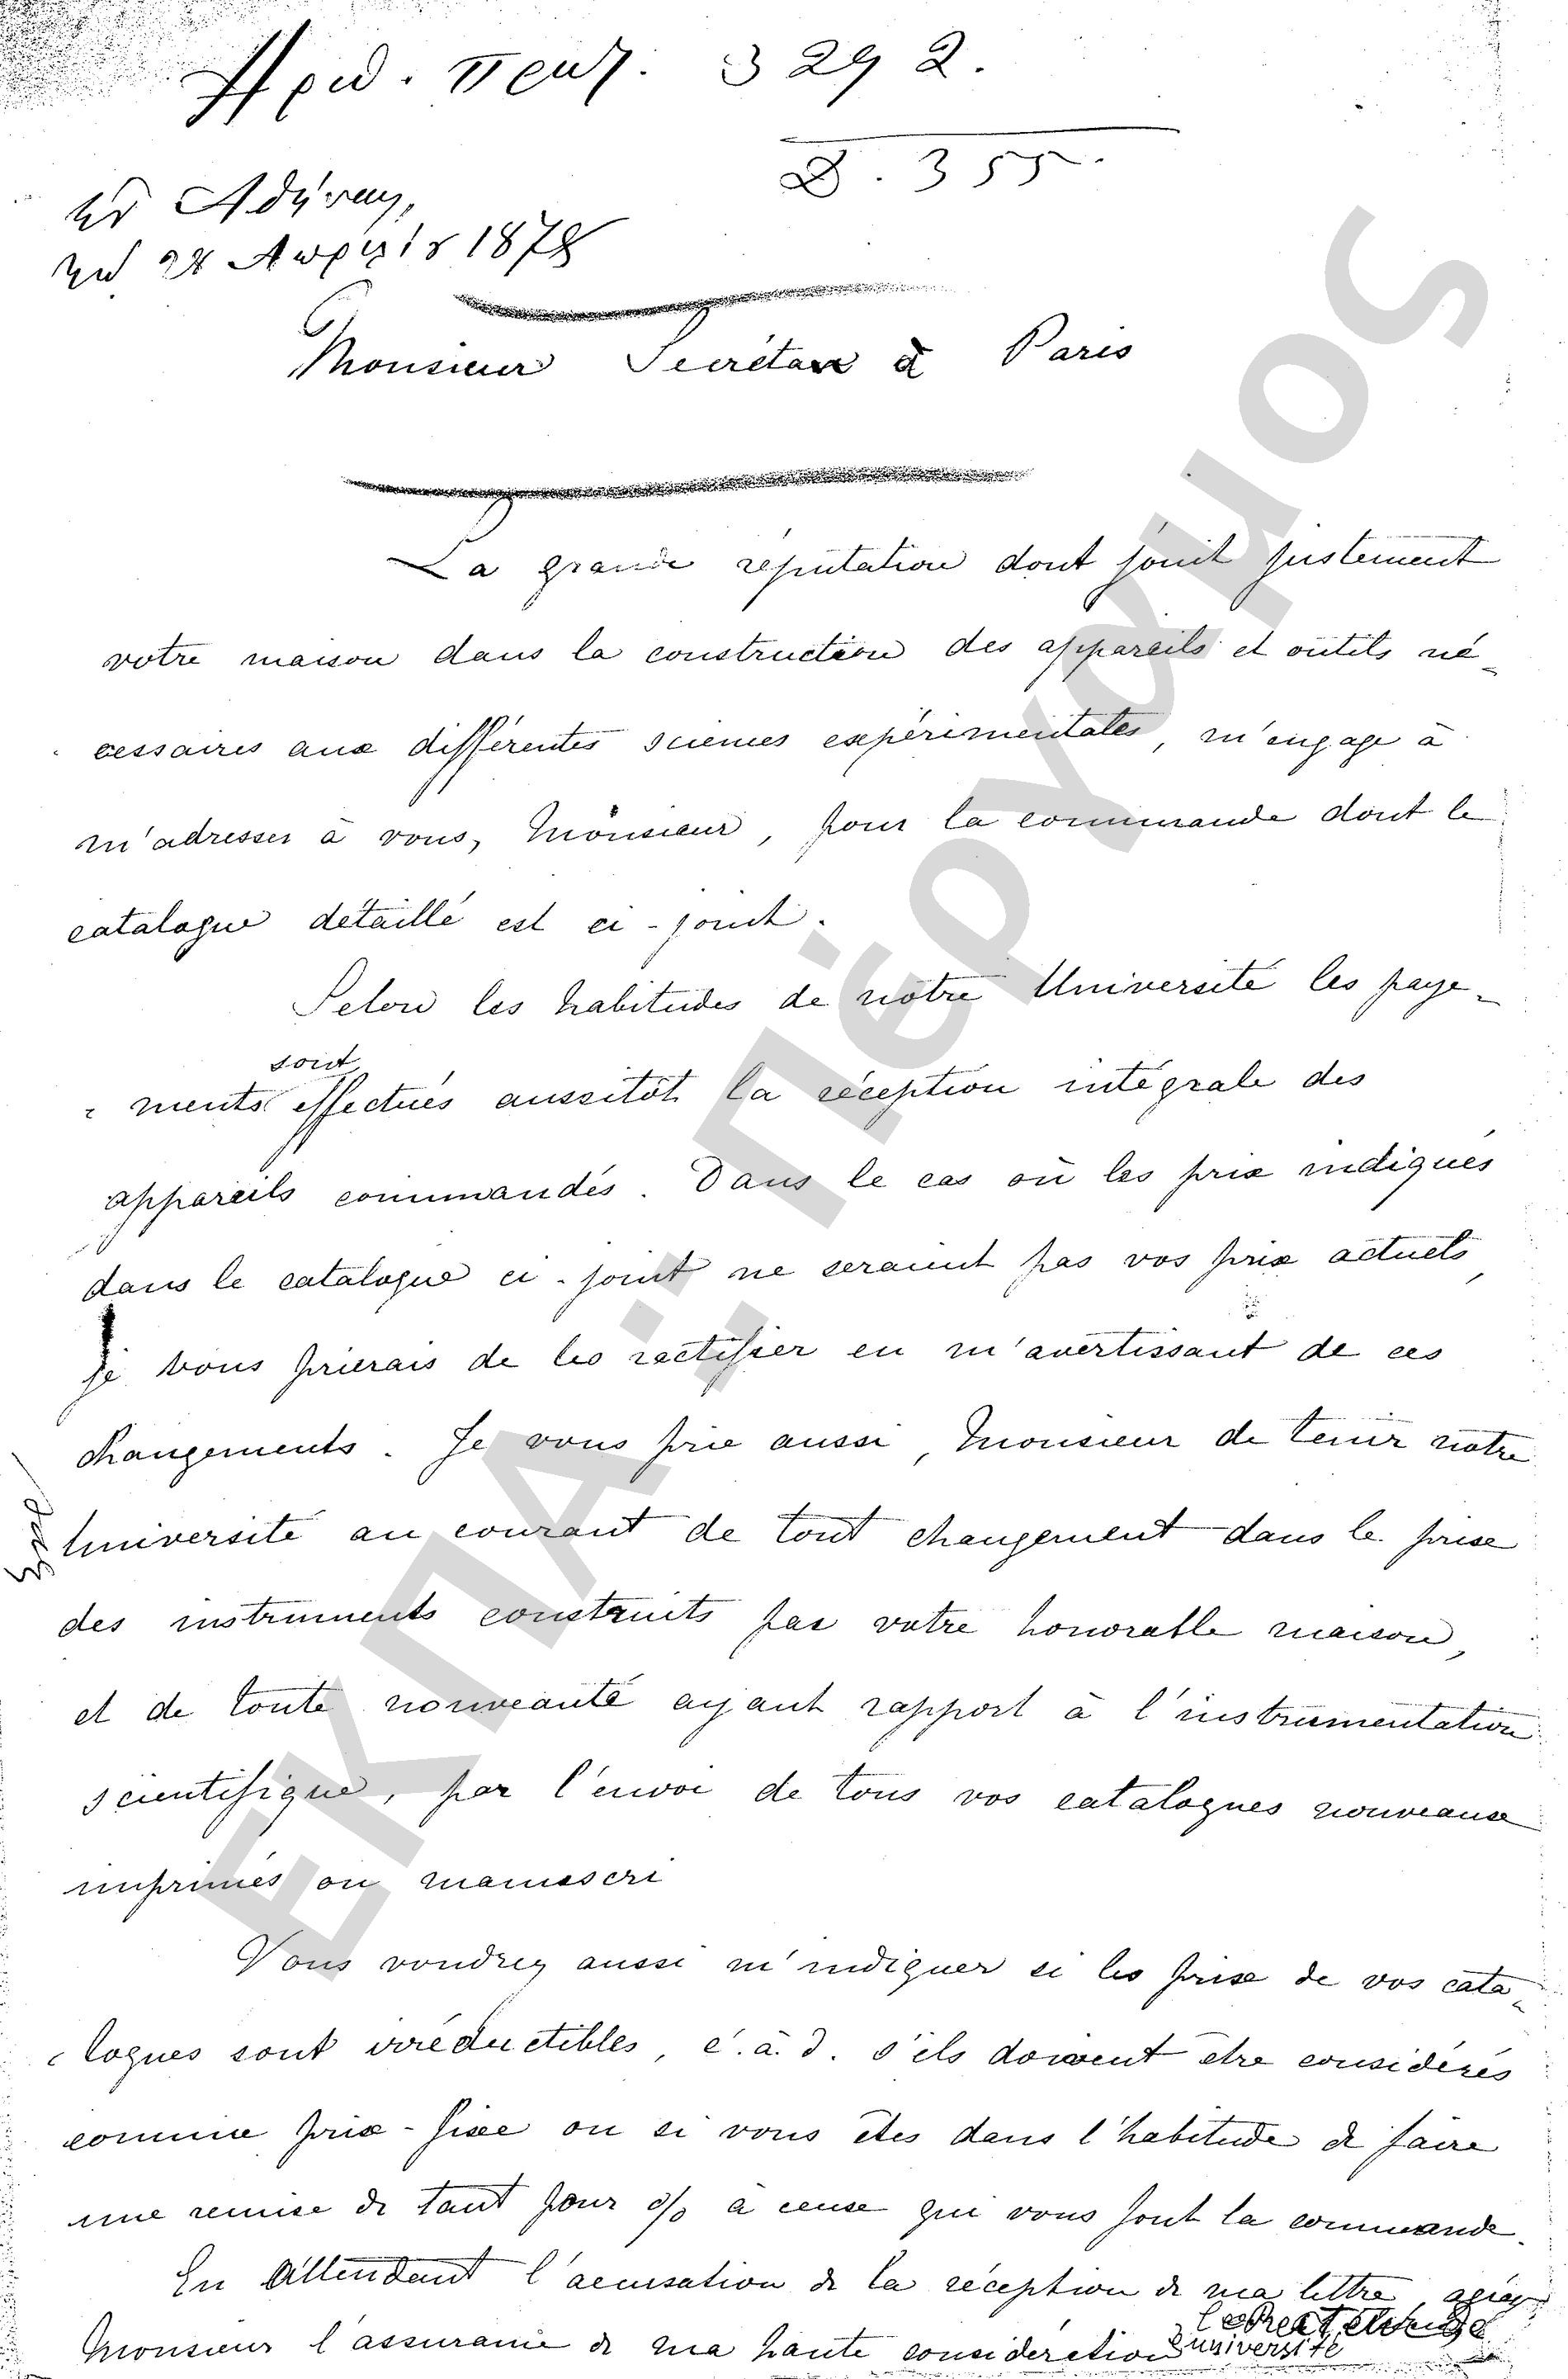 Αριθ. Πρωτ. 3292.
Δ. 355.
Ἐν Ἀθήναις,
τῇ 28 Ἀπριλίου 1878
Monsieur Secrétan à Paris
La grande réputation dont jouit justement
votre maison dans la construction des appareils et outils né-
cessaires aux différentes sciences expérimentales, m'engage à
m'adresser à vous, Monsieur, pour la commande dont le
catalogue détaillé est ci-joint.
Selon les habitudes de notre Université les paye-
sont
ments effectués aussitôt la réception intégrale des
appareils commandés. Dans le cas où les prix indiqués
dans le catalogue ci-joint ne seraient pas vos prix actuels,
je vous prierais de les rectifier en m'avertissant de ces
changements. Je vous prie aussi, Monsieur de tenir notre
Université au courant de tout changement dans le prix
des instruments construits par votre honorable maison,
et de toute nouveauté ayant rapport à l'instrumentation
scientifique, par l'envoi de tous vos catalogues nouveaux
imprimés ou manuscri
Vous voudrez aussi m'indiquer si les prix de vos cata-
logues sont irréductibles, c.à.d. s'ils doivent être considérés
comme prix-fixe ou si vous êtes dans l'habitude de faire
une remise de tant pour % à ceux qui vous font la commande.
En attendant l'accusation de la réception de ma lettre, agréez
Monsieur l'assurance de ma haute considération
le Recteur de
l'université
ΕΚΠΑ: Πέργαμος